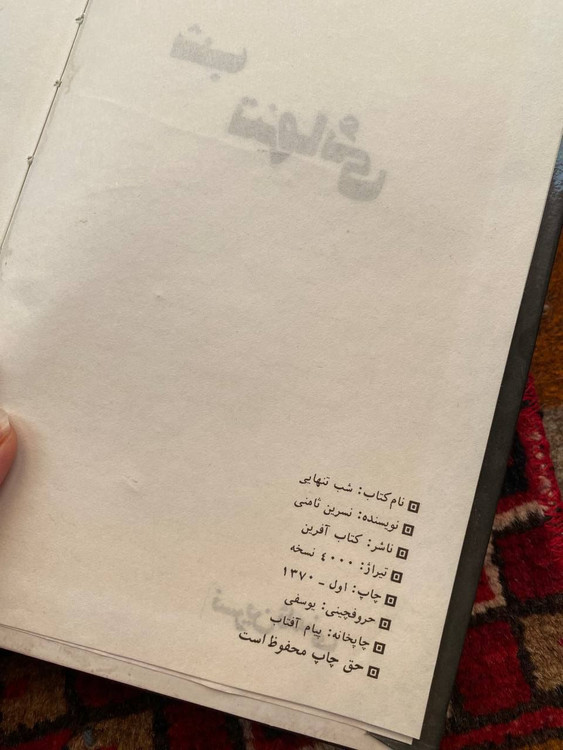 شب
تنهائی
نام کتاب: شب تنهایی
نویسنده: نسرین ثامنی
ناشر: کتاب آفرین
تیراژ: ۴۰۰۰ نسخه
چاپ: اول ـ ۱۳۷۰
حروفچینی: یوسفی
چاپخانه: پیام آفتاب
حق چاپ محفوظ است